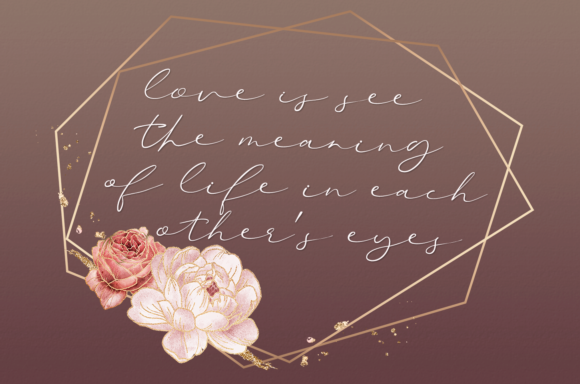 love is see
the meaning
of life in each
other's eyes